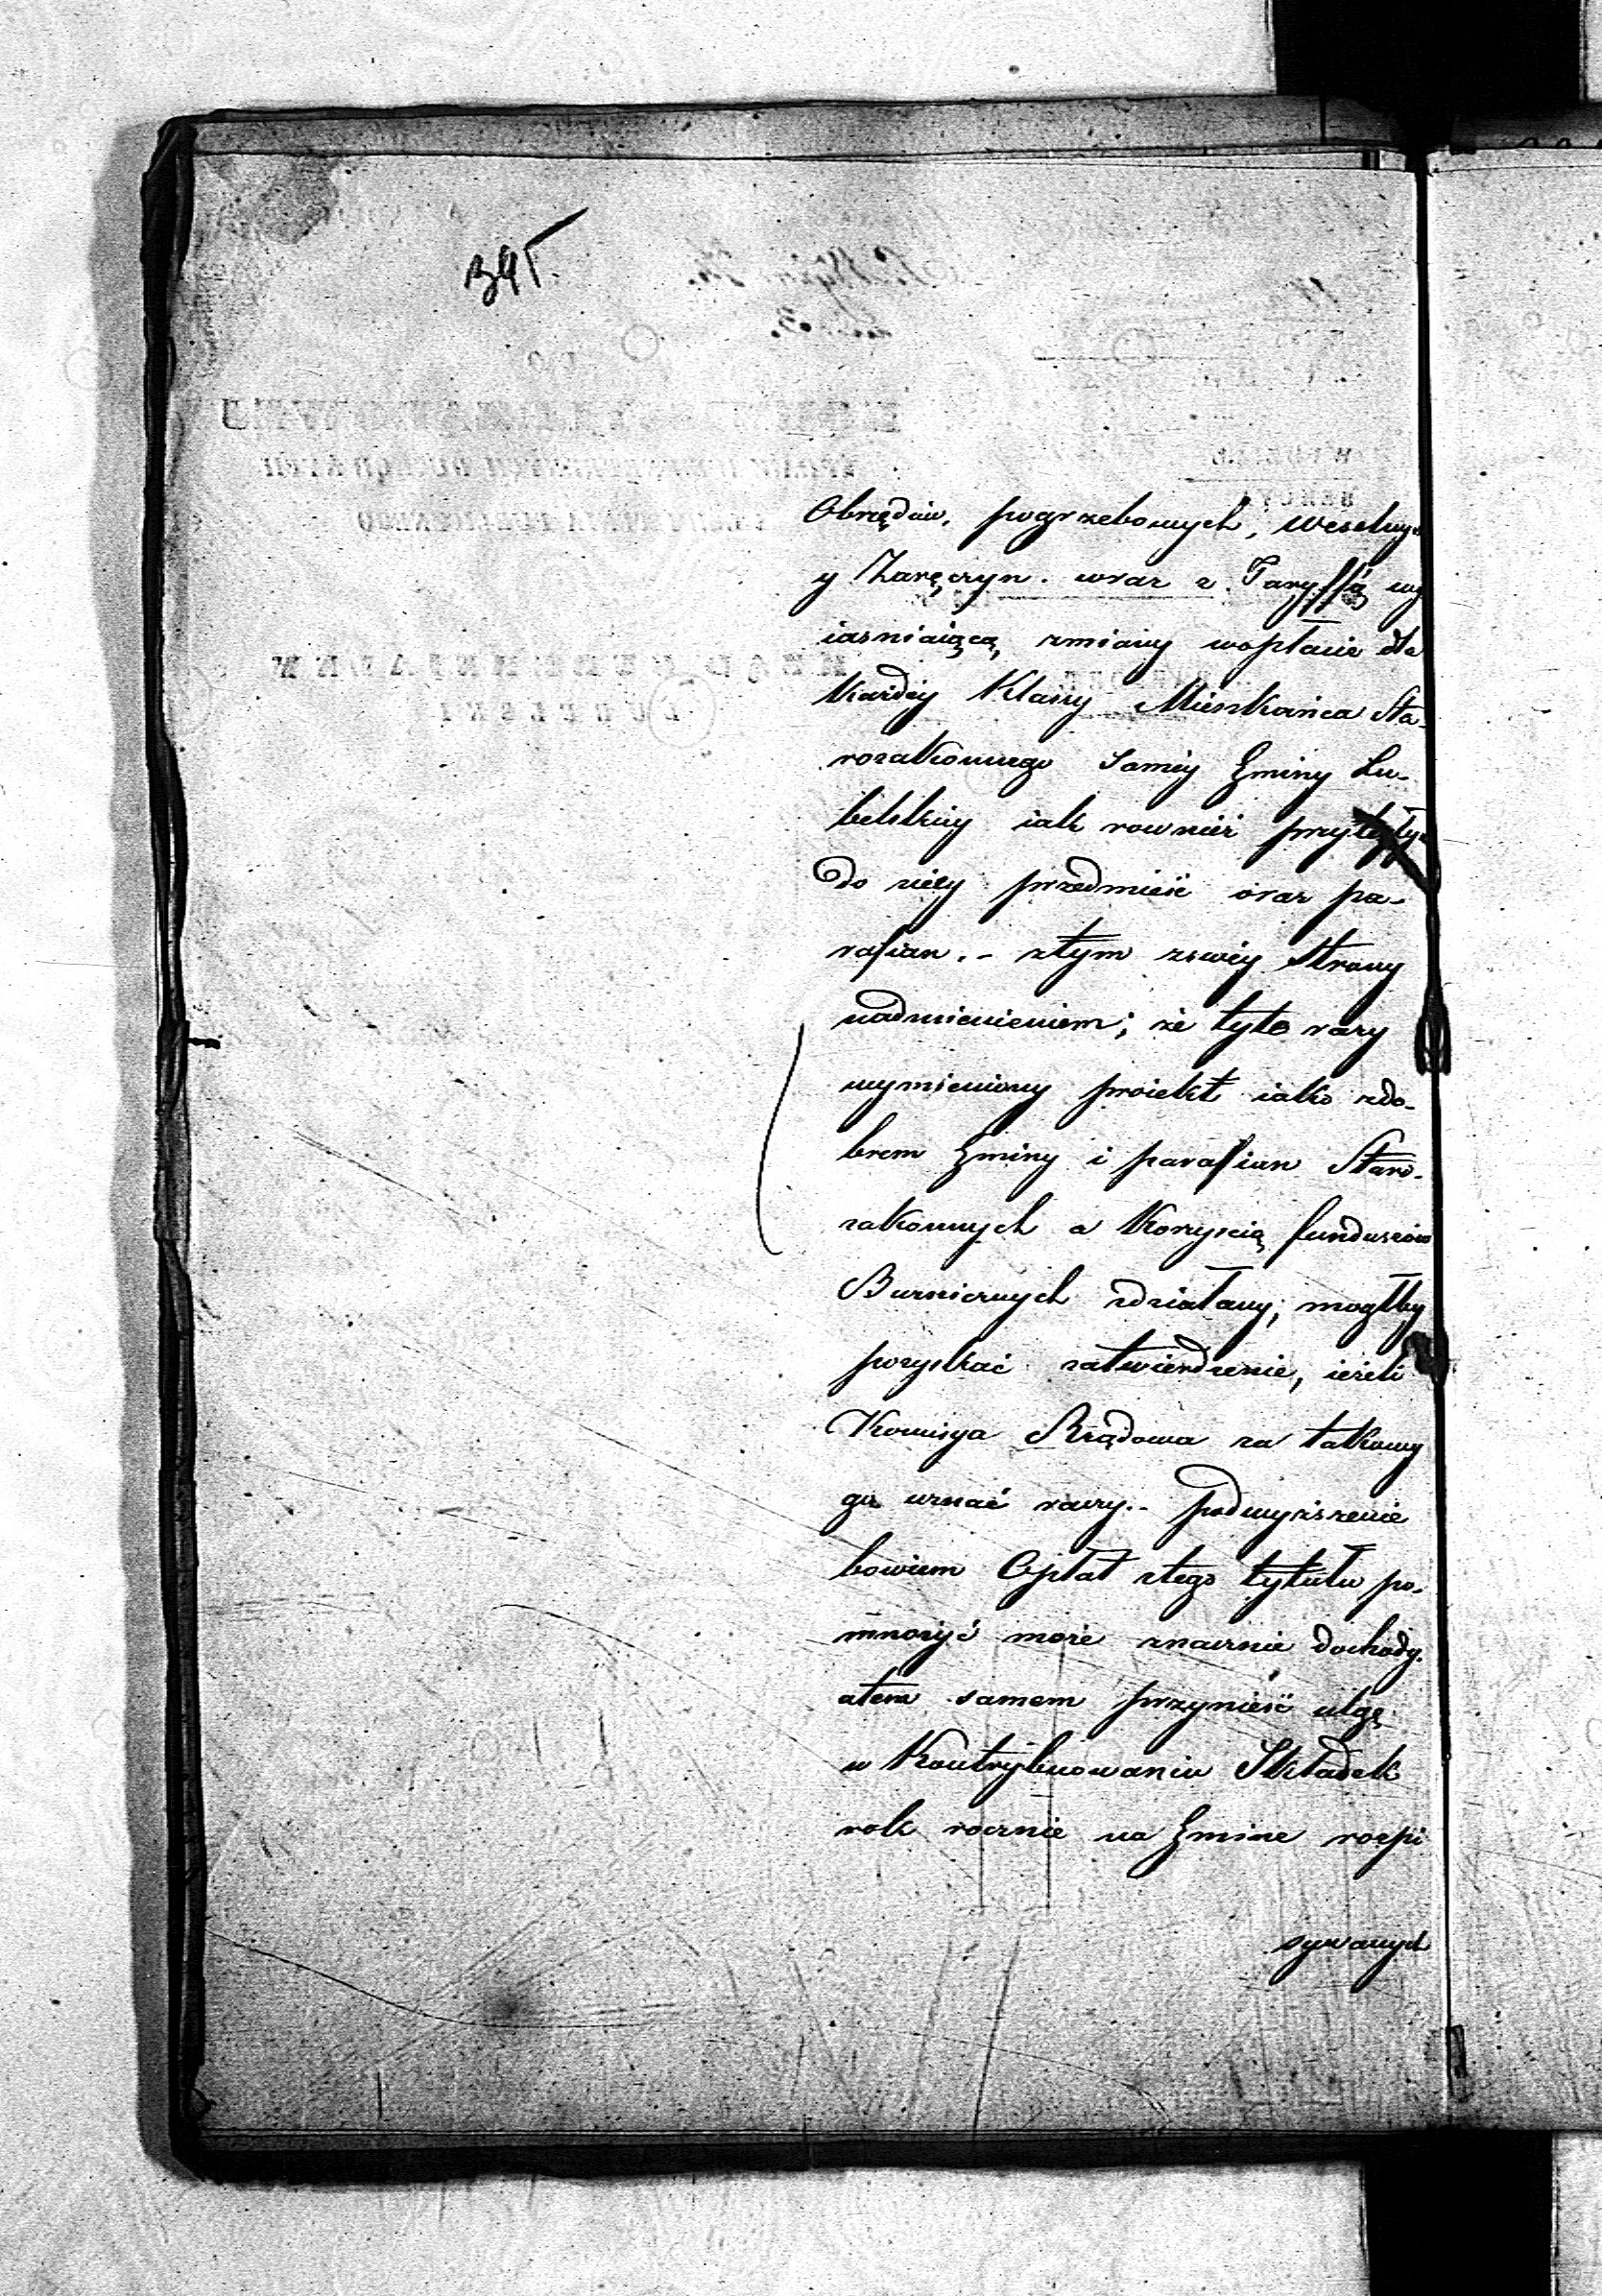 395.
Obrzędów, pogrzebowych, weselnych
y Zaręczyn. wraz z Taryffą wy
iasniaiącą zmiany wopłacie dla
każdéy Klassy Mieszkańca Sta-
rozakonnego saméy Gminy Lu-
belskiey iak rownież przyległych
do niéy przedmieść oraz pa-
rafian. - ztym zswéy Strony
nadmienieniem; że tyto razy
wymieniony proiekt iako zdo-
brem Gminy i parafian Staro-
zakonnych a Korzyścią funduszów
Bużniczych zdziałany, mogłby
pozyskać zatwierdzenie, ieżeli
Kommisya Rządowa za takowy
go uznać raczy. - podwyższenie
bowiem Opłat ztego tytułu po-
mnożyć może znacznie dochody.
atém samem przynieść ulgę
w Kontrybuowaniu Składek
rok rocznie na Gminę rozpi
sywanych